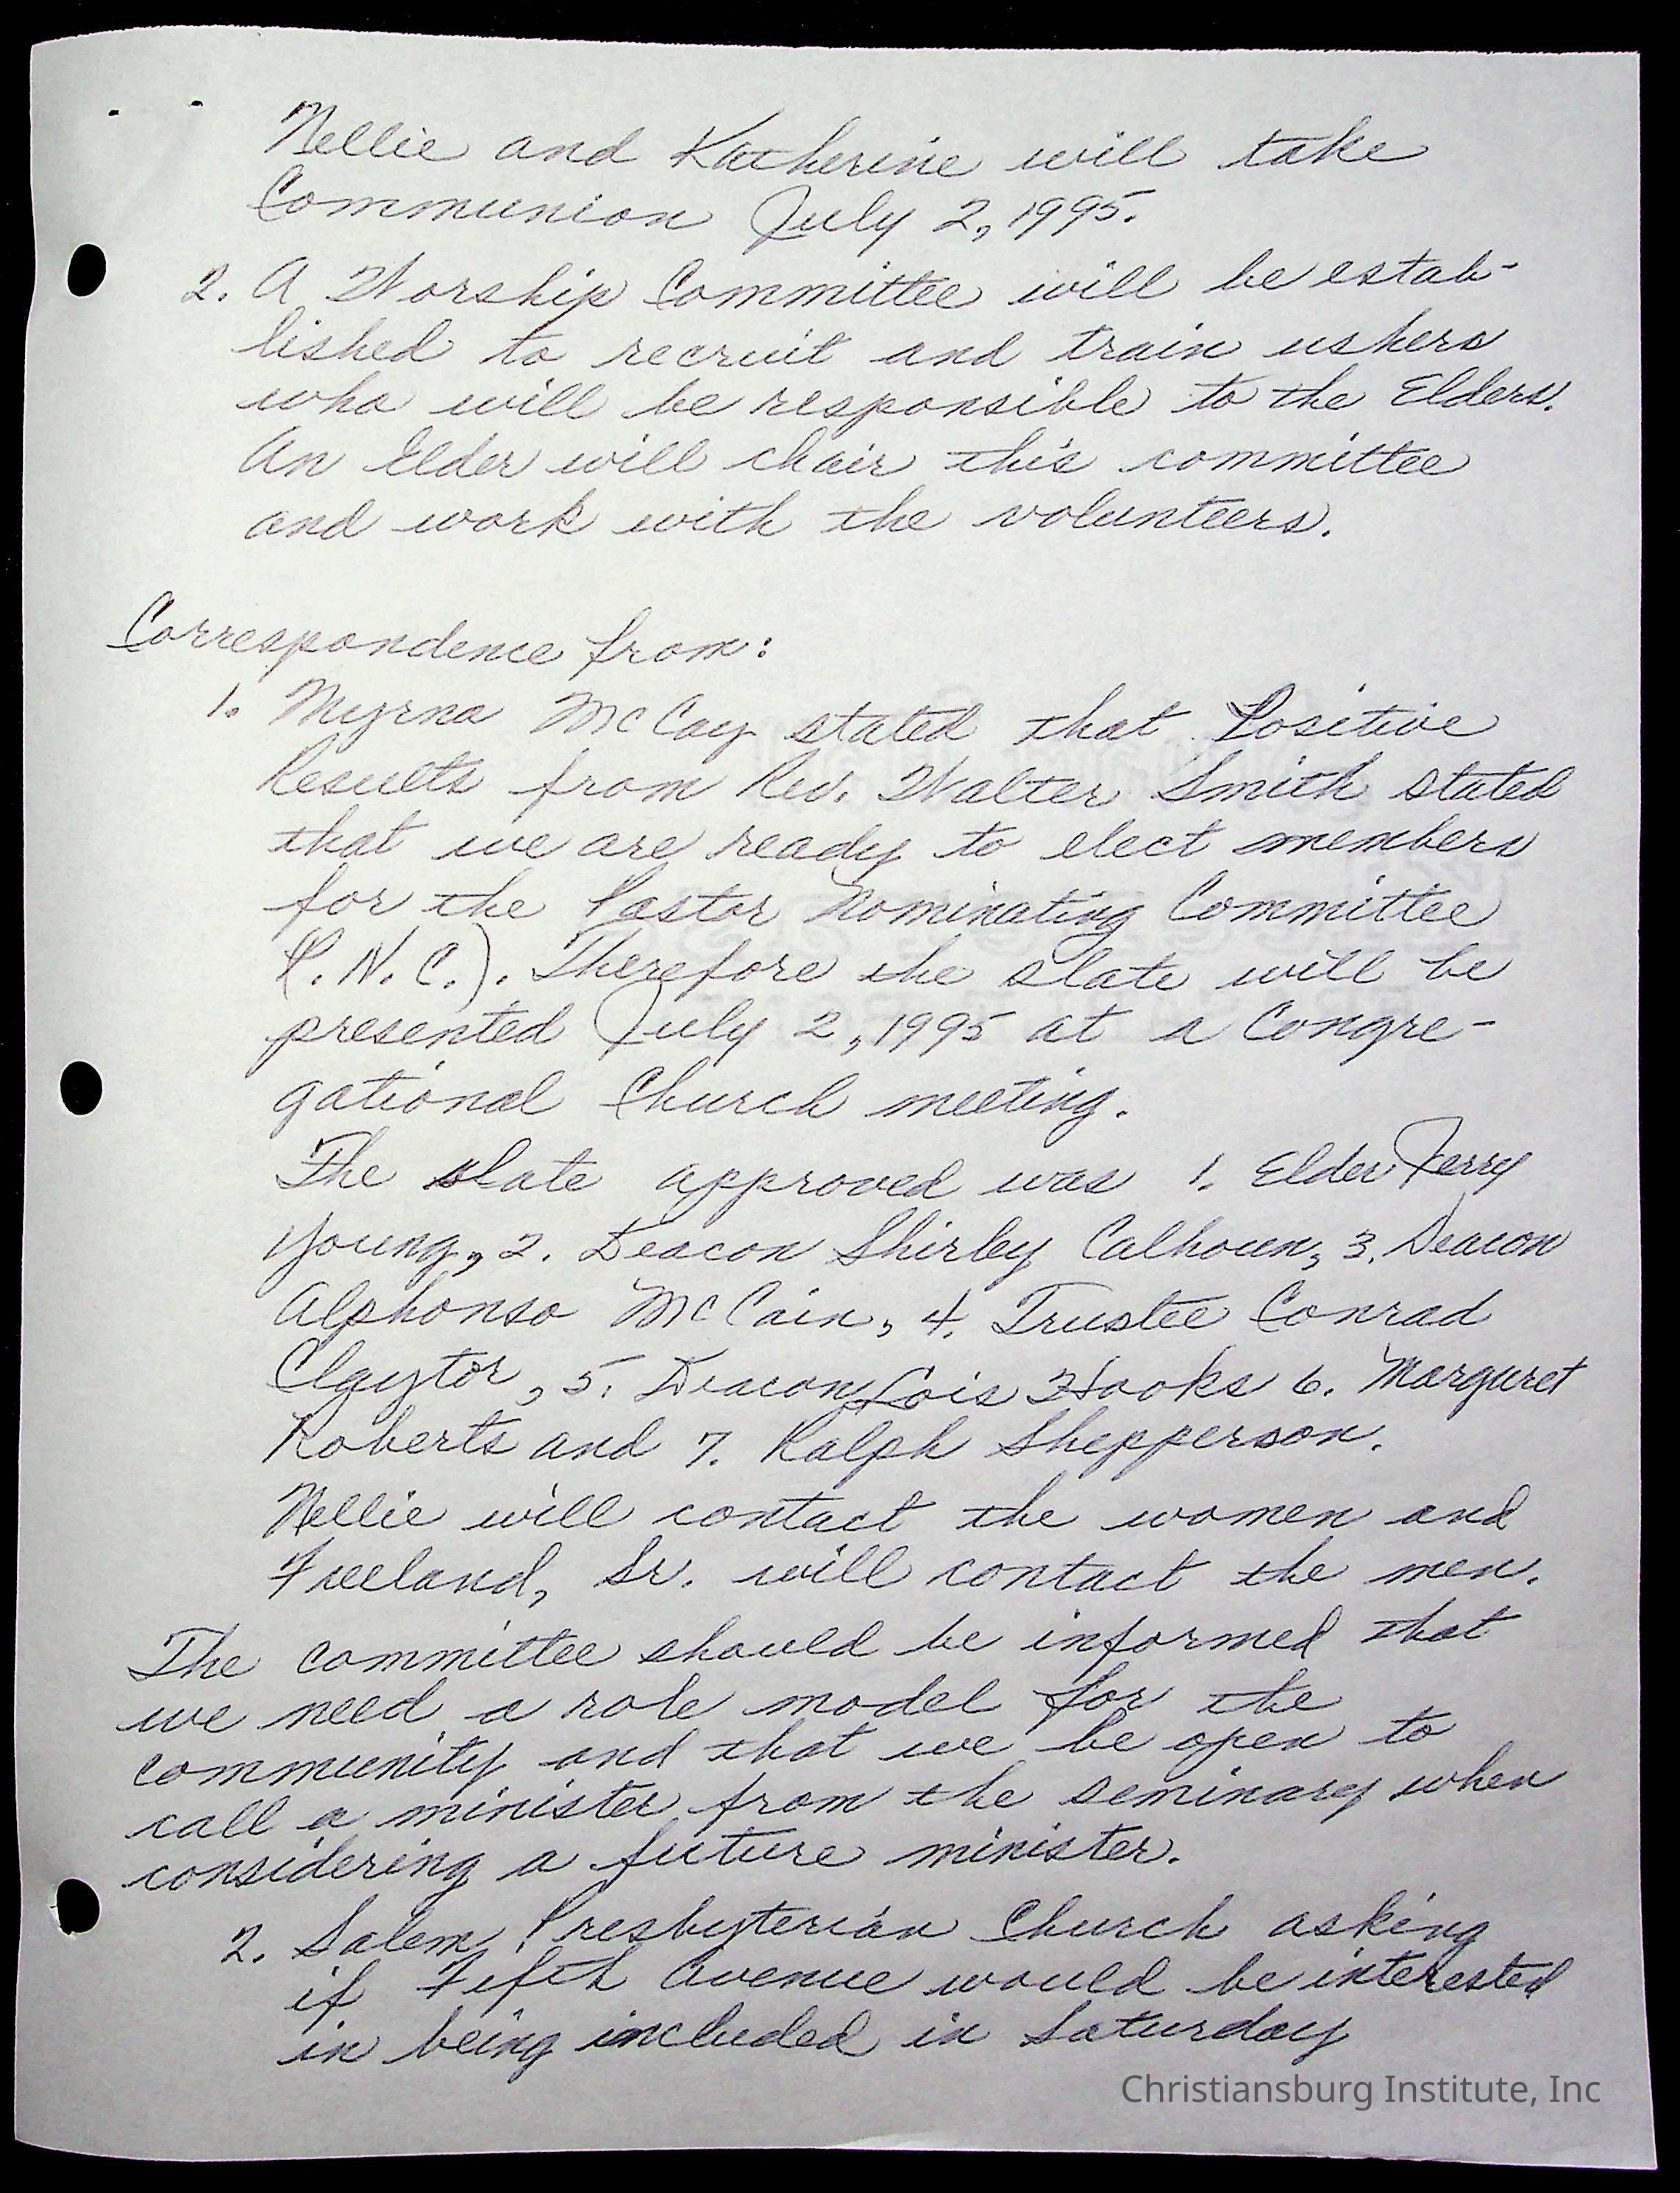 Nellie and Katherine will take
Communion July 2, 1995.
2. A Worship Committee will be estab-
lished to recruit and train ushers
who will be responsible to the Elders.
An Elder will chair this committee
and work with the volunteers.
Correspondence from:
1. Myrna McCoy stated that Positive
Results from Rev. Walter Smith stated
that we are ready to elect members
for the Pastor Nominating Committee
P. N. C.). Therefore the slate will be
presented July 2, 1995 at a Congre-
gational Church meeting.
The slate approved was 1. Elder Jerry
Young, 2. Deacon Shirley Calhoun, 3. Deacon
Alphonso McCain, 4. Trustee Conrad
Claytor, 5. Deacon Lois Hooks 6. Marguret
Roberts and 7. Ralph Shepperson.
Nellie will contact the women and
Freeland, Sr. will contact the men.
The committee should be informed that
we need a role model for the
community and that we be open to
call a minister from the seminary when
considering a future minister.
2. Salem Presbyterian Church asking
if Fifth Avenue would be interested
in being included in Saturday
Christiansburg Institute, Inc